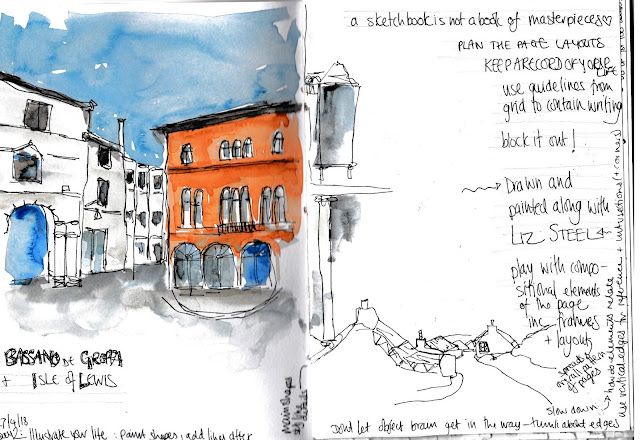 a sketchbook is not a book of masterpieces♡
PLAN THE PAGE LAYOUTS
KEEP A RECORD OF YOUR
LIFE
use guidelines from
grid to contain writing
block it out!
Drawn and
painted along with
LIZ STEEL
play with compo-
sitional elements
of the page
inc. frames
+ layouts
BASSANO DE GRAPPA
+ ISLE of LEWIS
overall pattern
of pages
slow down
how do elements relate
use vertical edges for reference + intersections (+ corners)
7/9/18
: Illustrate your life : Paint shapes, add lines after
Dont let object brain get in the way - think about edges